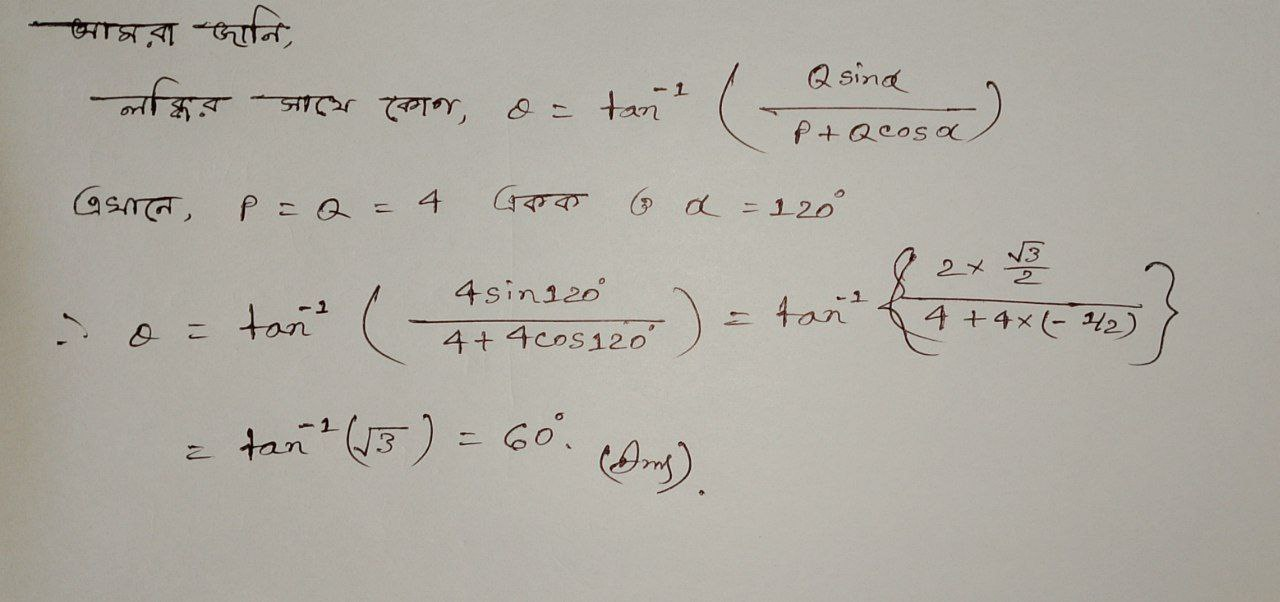 আমরা জানি,
লব্ধির সাথে কোণ, θ = tan⁻¹ (Q sinα / P + Q cos α)
এখানে, P = Q = 4 একক ও α = 120°
∴ θ = tan⁻¹ (4 sin 120° / 4 + 4 cos 120°) = tan⁻¹ {2 × √3/2 / 4 + 4 × (- 1/2)}
= tan⁻¹ (√3) = 60°. (Ans).